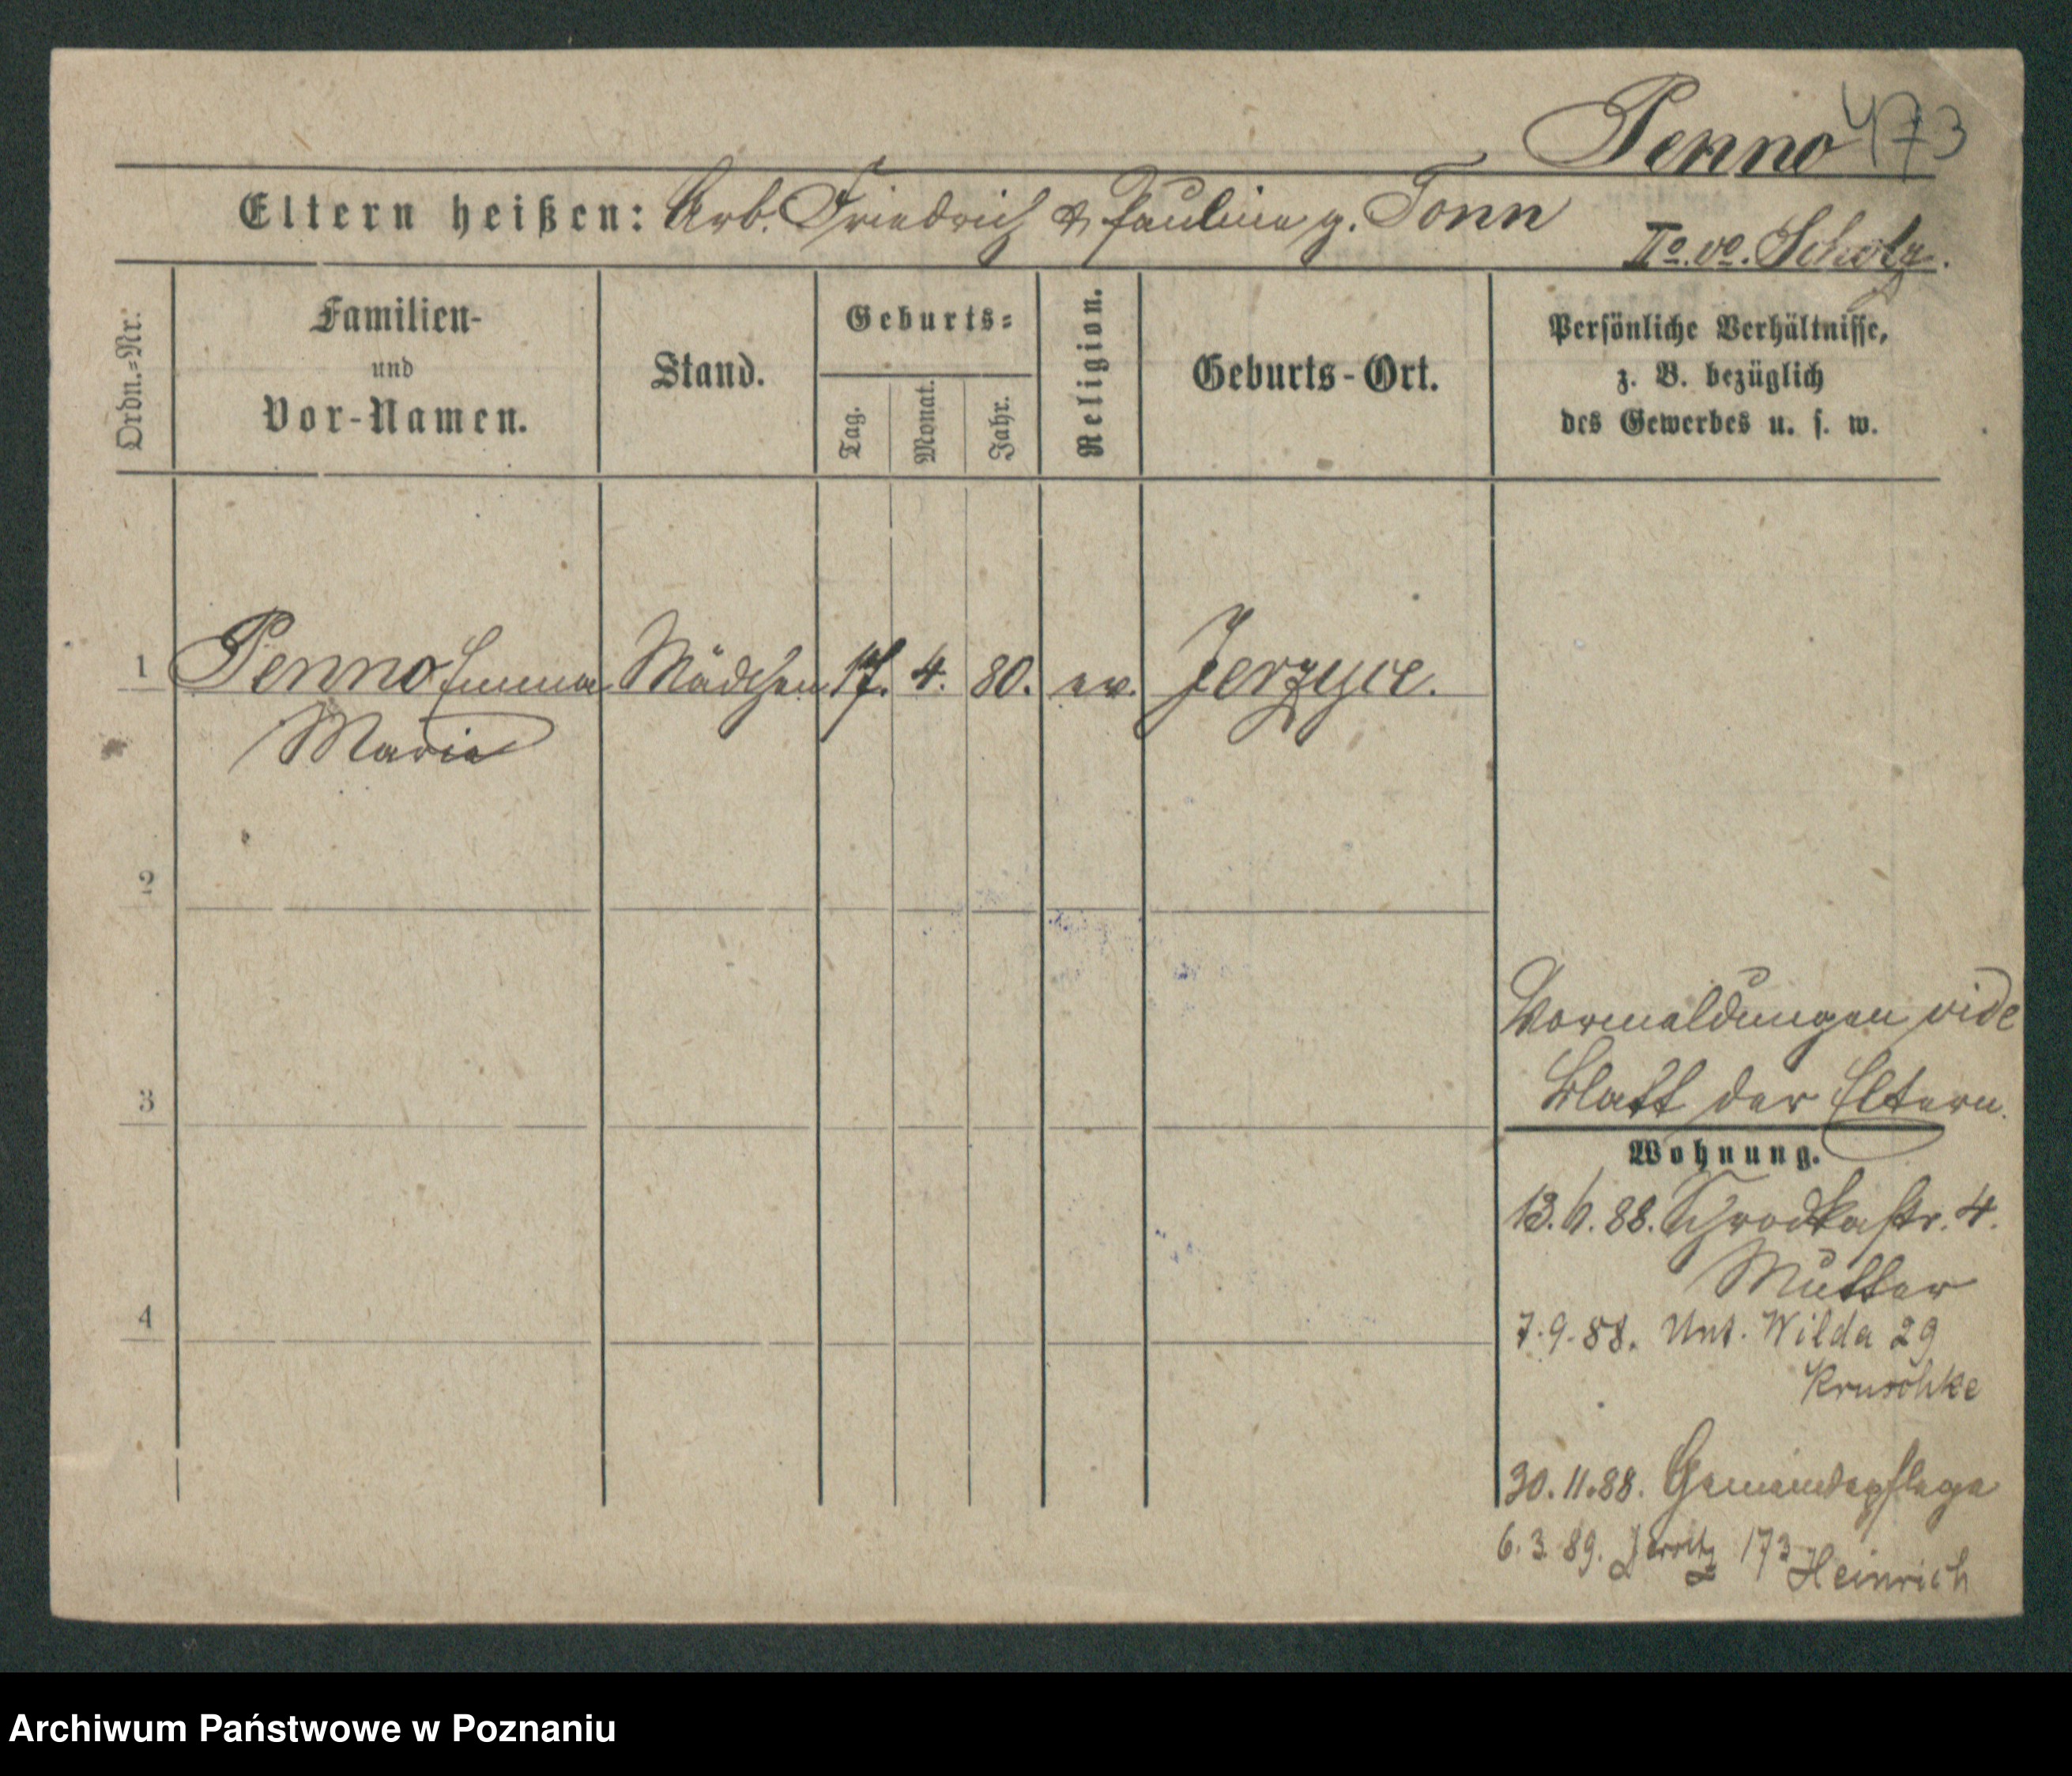 Penno 473
Eltern heißen: Arb. Friedrich & Pauline g. Tonn
IIo. vo. Scholz.
Ordn.=Nr.
Familien-
und
Vor-Namen.
Stand.
Geburts=
Tag.
Monat.
Jahr.
Religion.
Geburts-Ort.
Persönliche Verhältnisse,
z. B. bezüglich
des Gewerbes u. s. w.
1 Penno Emma Mädchen 17. 4. 80. ev. Jerzyce.
Maria
2
3
4
Vormeldungen vide
Blatt der Eltern.
Wohnung.
13.6.88. Schrodkastr. 4.
Mutter
7.9.88. Unt. Wilda 29
Kruschke
30.11.88. Gemeindepflege
6.3.89. Jersitz 173 Heinrich
Archiwum Państwowe w Poznaniu